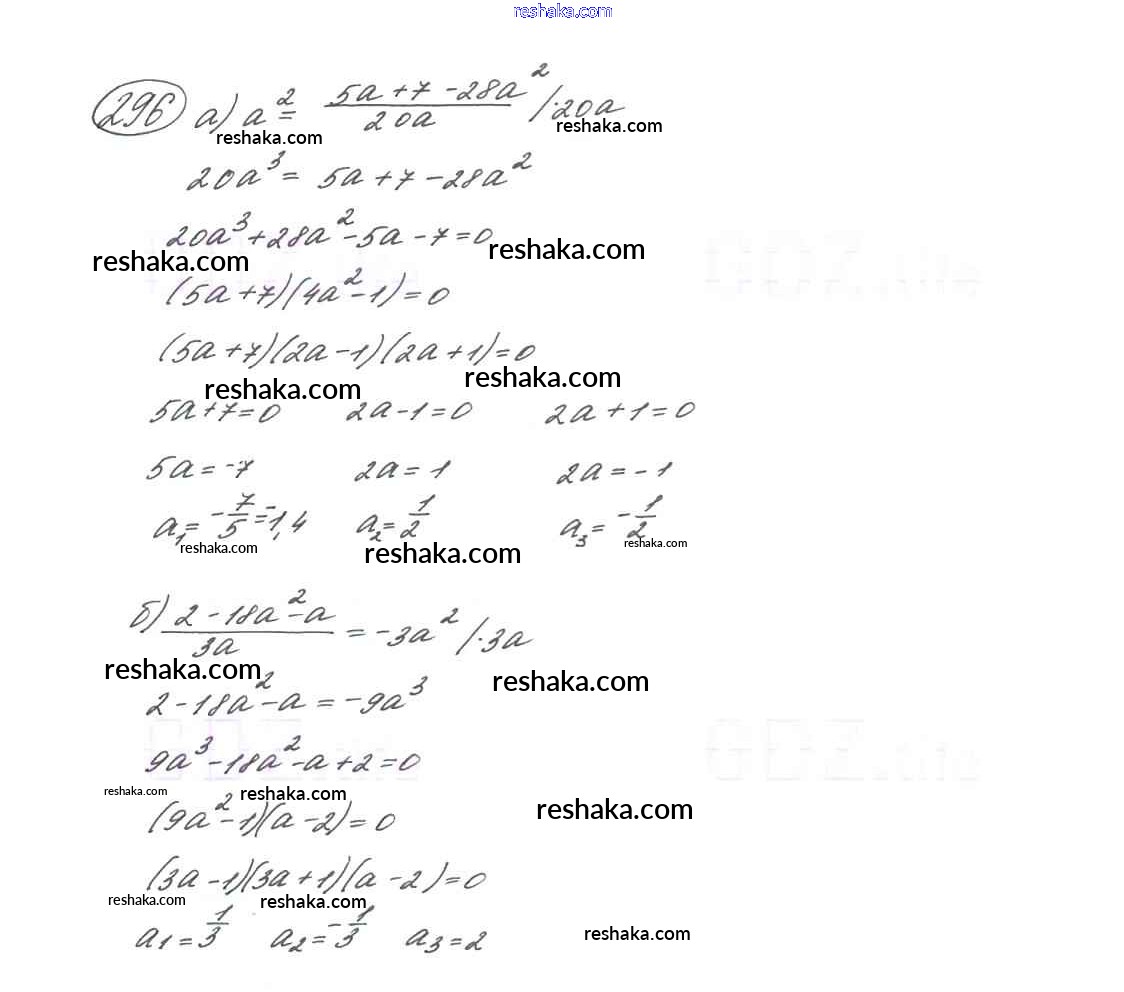 reshaka.com
296 а) a² = (5a + 7 - 28a²)/(20a) /·20a
reshaka.com reshaka.com
20a³ = 5a + 7 - 28a²
20a³ + 28a² - 5a - 7 = 0
reshaka.com reshaka.com
(5a + 7)(4a² - 1) = 0
(5a + 7)(2a - 1)(2a + 1) = 0
reshaka.com reshaka.com
5a + 7 = 0 2a - 1 = 0 2a + 1 = 0
5a = -7 2a = 1 2a = -1
a₁ = -7/5 = -1,4 a₂ = 1/2 a₃ = -1/2
reshaka.com reshaka.com reshaka.com
б) (2 - 18a² - a)/(3a) = -3a² /·3a
reshaka.com reshaka.com
2 - 18a² - a = -9a³
GDZ.life GDZ.life
9a³ - 18a² - a + 2 = 0
reshaka.com reshaka.com reshaka.com
(9a² - 1)(a - 2) = 0
(3a - 1)(3a + 1)(a - 2) = 0
reshaka.com reshaka.com
a₁ = 1/3 a₂ = -1/3 a₃ = 2
reshaka.com